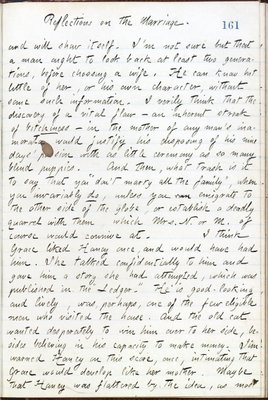 Reflections on the Marriage.
161
and will show itself. I'm not sure but that
a man ought to look back at least three genera-
tions, before choosing a wife. He can know but
little of her, or his own character, without
some such information. I verily think that the
discovery of a vital flaw — an inherent streak
of bitchiness — in the mother of any man's ina-
morata would justify his disposing of his nine
days' passion with as little ceremony as so many
blind puppies. And then, what trash is it
to say that you "don't marry all the family", when
you invariably do, unless you can emigrate to
the other side of the globe, or establish a deadly
quarrel with them which Mrs. or M. of
course would connive at. I think
Grace liked Haney once, and would have had
him. She talked confidentially to him and
gave him a story she had attempted, which was
published in the "Ledger." He is good-looking
and lively, was, perhaps, one of the few eligible
men who visited the house. And the old cat
wanted desperately to win him over to her side, be-
sides believing in his capacity to make money. Jim
warned Haney in this scene, once, intimating that
Grace would develop like her mother. Maybe
that Haney was flattered by the idea, as most